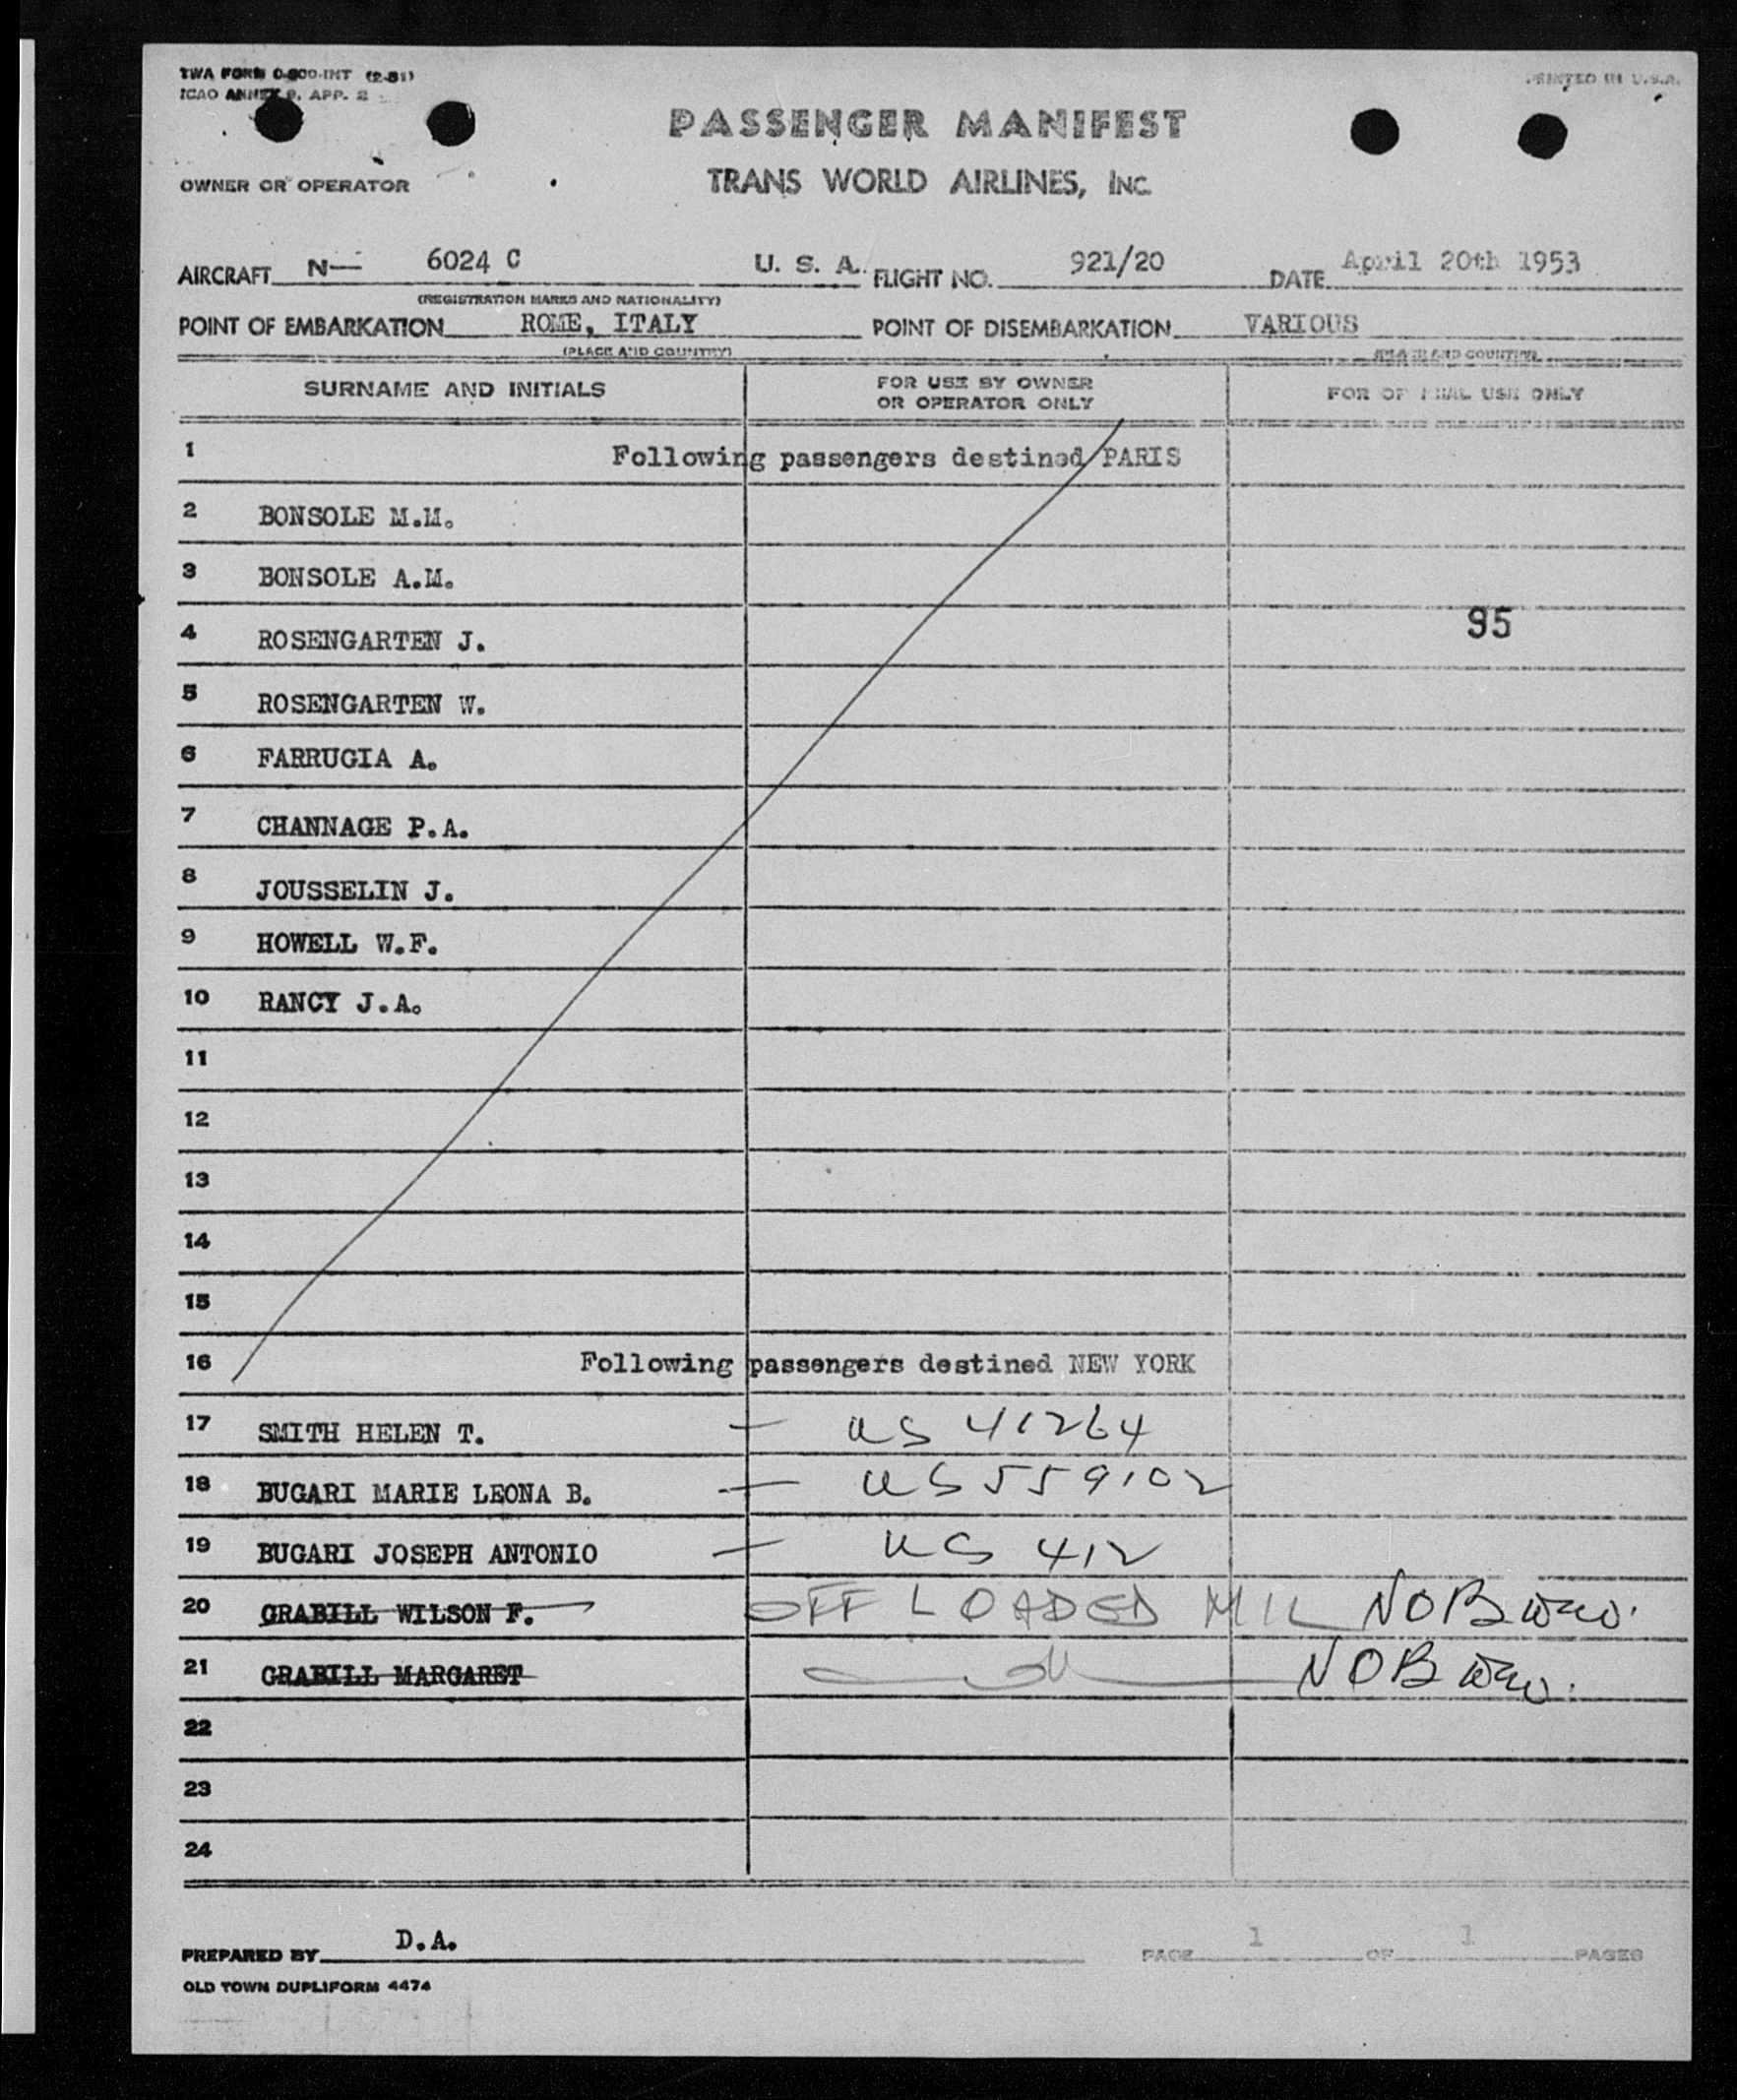 TWA FORM 0-800-INT (2-51)
ICAO ANNEX 9, APP. 2
PRINTED IN U.S.A.
PASSENGER MANIFEST
OWNER OR OPERATOR
TRANS WORLD AIRLINES, INC.
AIRCRAFT N— 6024 C U. S. A. FLIGHT NO. 921/20 DATE April 20th 1953
(REGISTRATION MARKS AND NATIONALITY)
POINT OF EMBARKATION ROME, ITALY POINT OF DISEMBARKATION VARIOUS
(PLACE AND COUNTRY) (PLACE AND COUNTRY)
SURNAME AND INITIALS FOR USE BY OWNER OR OPERATOR ONLY FOR OFFICIAL USE ONLY
1 Following passengers destined PARIS
2 BONSOLE M.M.
3 BONSOLE A.M.
95
4 ROSENGARTEN J.
5 ROSENGARTEN W.
6 FARRUGIA A.
7 CHANNAGE P.A.
8 JOUSSELIN J.
9 HOWELL W.F.
10 RANCY J.A.
11
12
13
14
15
16 Following passengers destined NEW YORK
17 SMITH HELEN T. — US 41264
18 BUGARI MARIE LEONA B. — US 559102
19 BUGARI JOSEPH ANTONIO — US 412
20 GRABILL WILSON F. OFF LOADED MIL NOB
21 GRABILL MARGARET NOB
22
23
24
PREPARED BY D.A. PAGE 1 OF 1 PAGES
OLD TOWN DUPLIFORM 4474